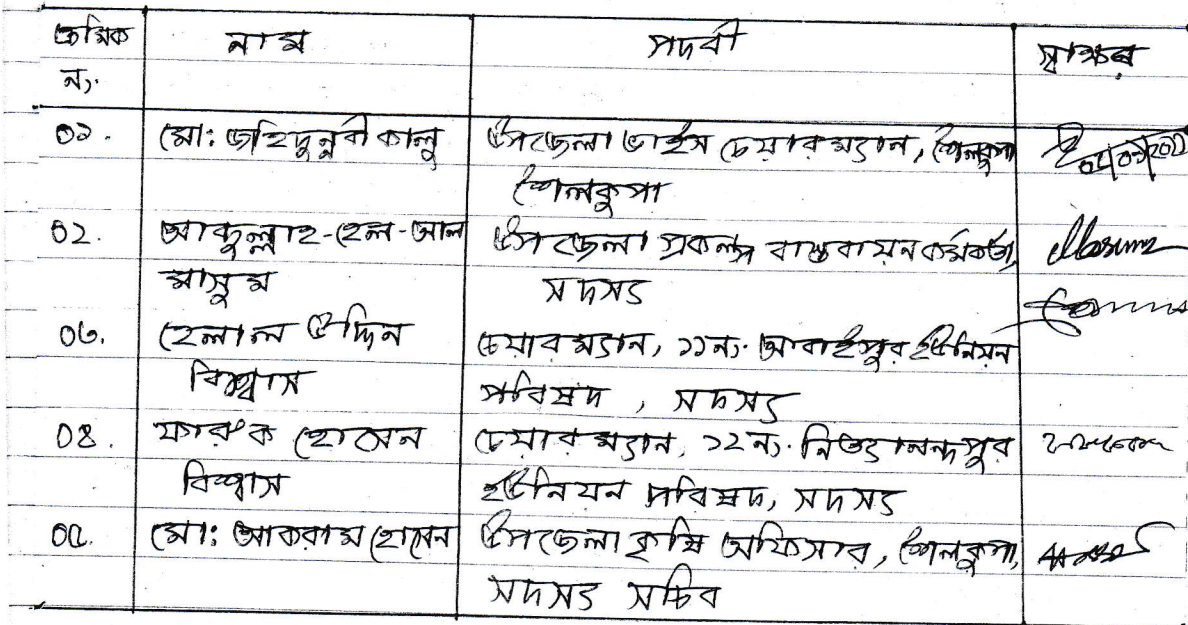 ক্রমিক নং নাম পদবী স্বাক্ষর
০১. মো: জহিদুন্নবী কালু উপজেলা ভাইস চেয়ারম্যান, শৈলকুপা
শৈলকুপা
০২. আব্দুল্লাহ-হেল-আল উপজেলা প্রকল্প বাস্তবায়ন কর্মকর্তা, Masum
মাসুম সদস্য
০৩. হেলাল উদ্দিন চেয়ারম্যান, ১১নং আবাইপুর ইউনিয়ন
বিশ্বাস পরিষদ, সদস্য
০৪. ফারুক হোসেন চেয়ারম্যান, ১২নং নিত্যানন্দপুর
বিশ্বাস ইউনিয়ন পরিষদ, সদস্য
০৫. মো: আকরাম হোসেন উপজেলা কৃষি অফিসার, শৈলকুপা,
সদস্য সচিব